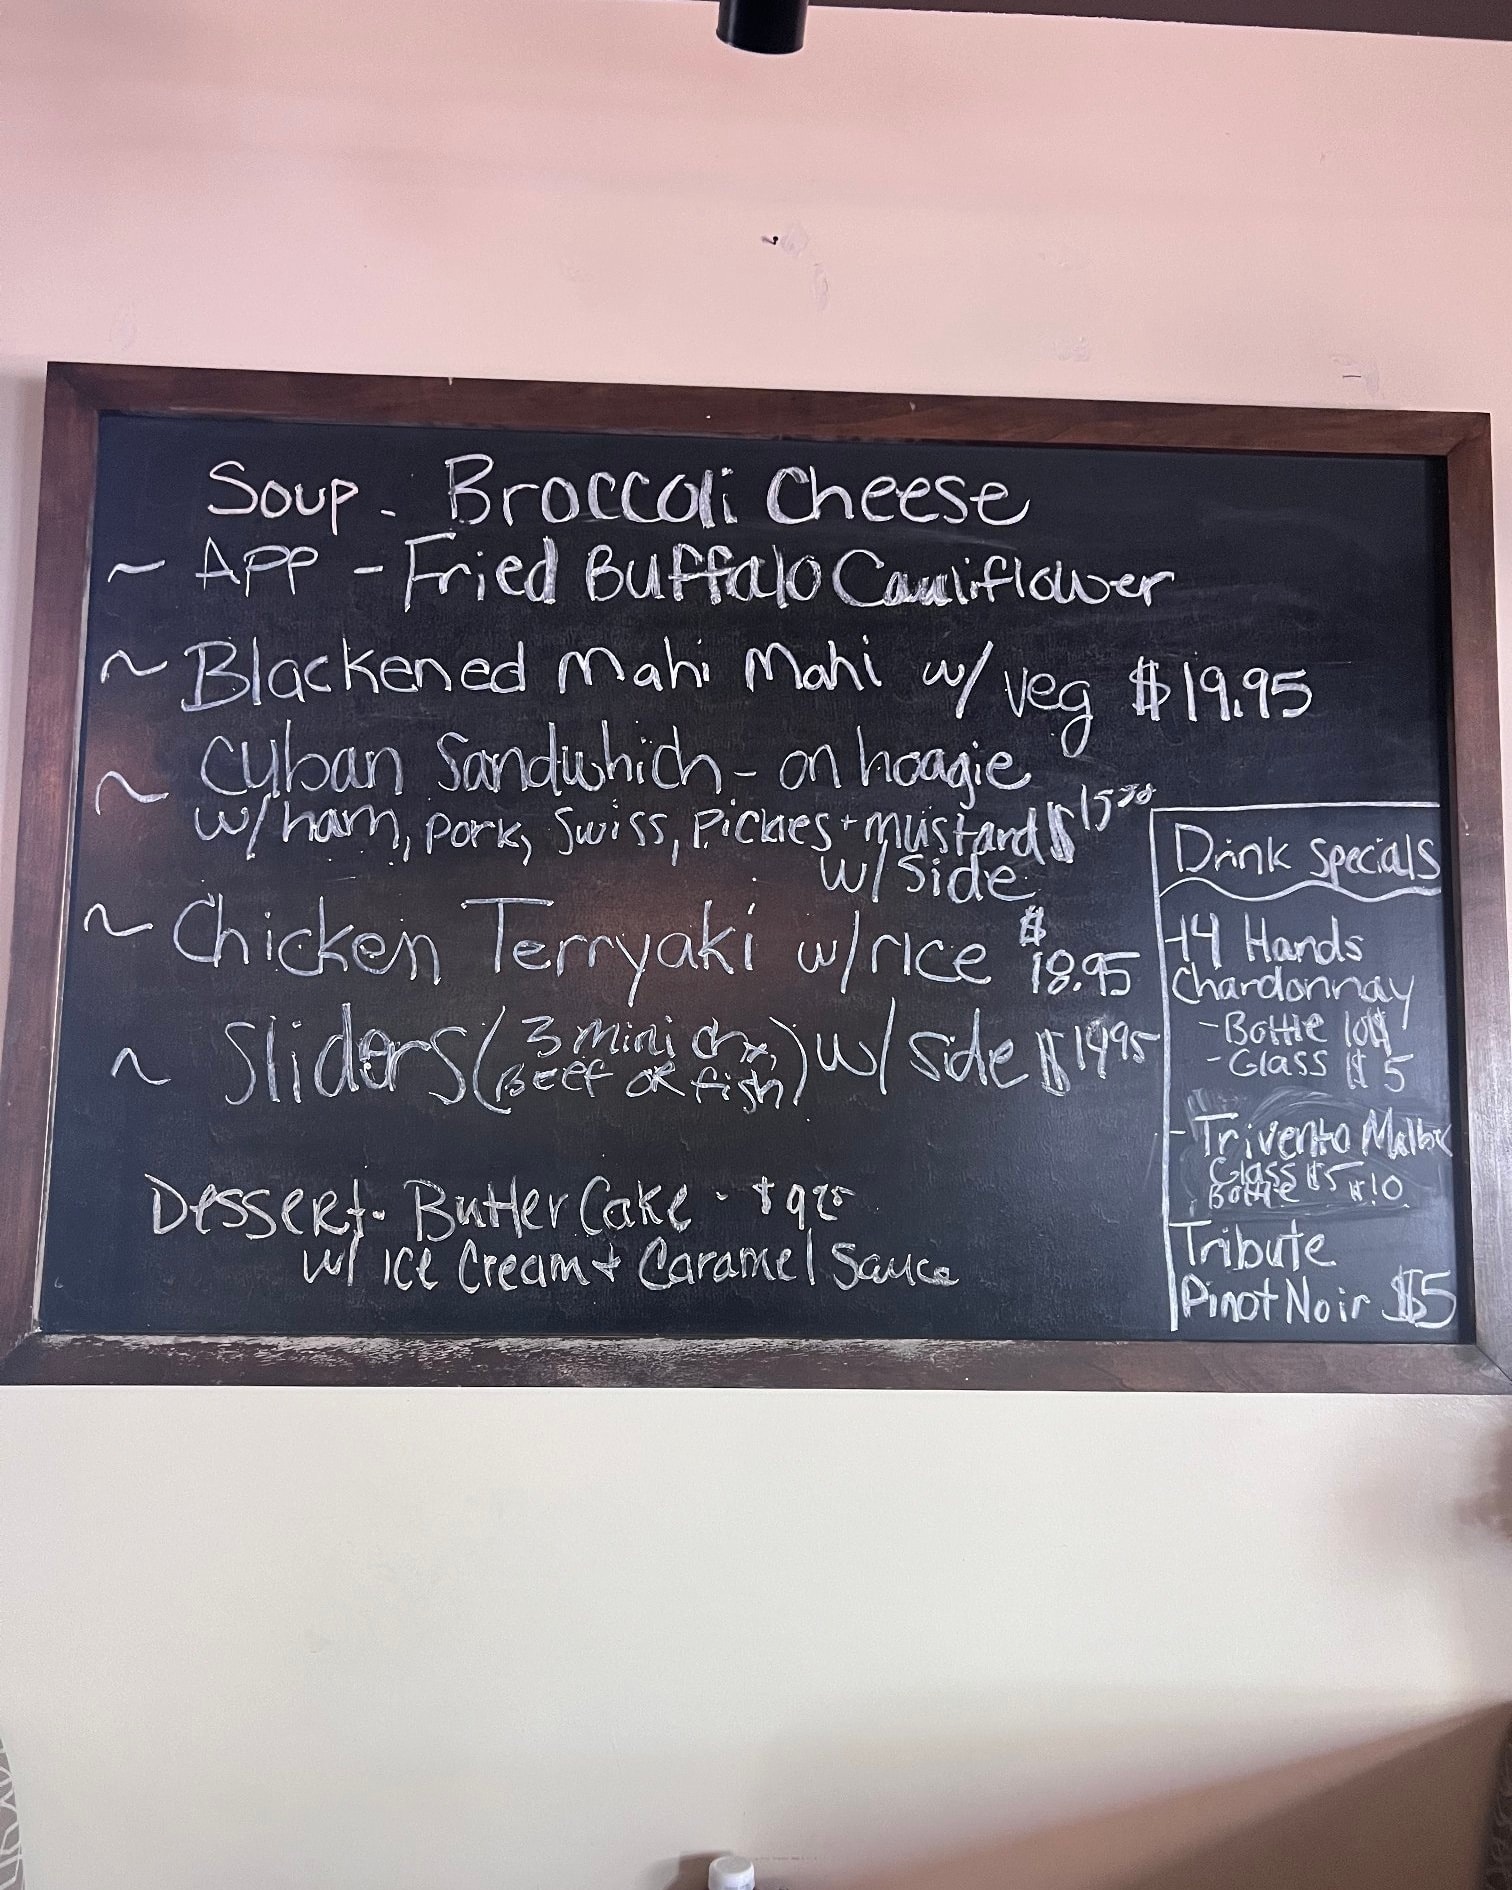 Soup - Broccoli Cheese
~ APP - Fried Buffalo Cauliflower
~ Blackened Mahi Mahi w/ veg $19.95
~ Cuban Sandwhich - on hoagie
w/ham, pork, Swiss, Pickles + mustard $15
w/ side
~ Chicken Terryaki w/rice $18.95
~ Sliders (3 mini chx, Beef or fish) w/ side $14.95
Dessert - Butter Cake - $9
w/ Ice Cream + Caramel Sauce
Drink Specials
14 Hands
Chardonnay
- Bottle
- Glass $5
- Trivento Malbec
Glass $5
Bottle $10
Tribute
Pinot Noir $5